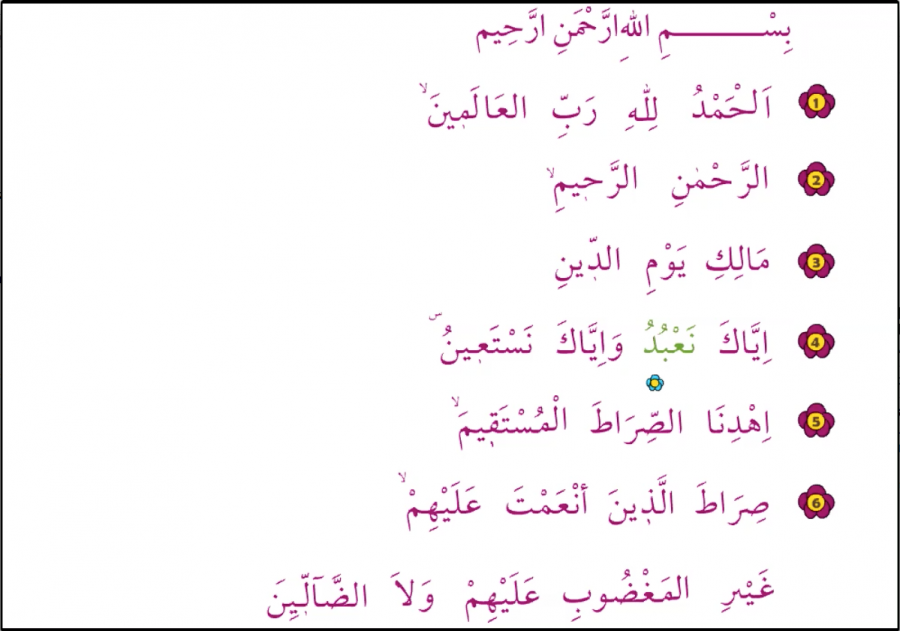 بِسْـــــــــــمِ اللهِ ارَّحْمَنِ ارَّحِيم
1 اَلْحَمْدُ لِلّٰهِ رَبِّ العَالَم۪ينَۙ
2 الرَّحْمٰنِ الرَّح۪يمِۙ
3 مَالِكِ يَوْمِ الدّ۪ينِ
4 اِيَّاكَ نَعْبُدُ وَاِيَّاكَ نَسْتَع۪ينُۜ
5 اِهْدِنَا الصِّرَاطَ الْمُسْتَق۪يمَۙ
6 صِرَاطَ الَّذ۪ينَ أنْعَمْتَ عَلَيْهِمْۙ
غَيْرِ المَغْضُوبِ عَلَيْهِمْ وَلاَ الضَّآلّ۪ينَ